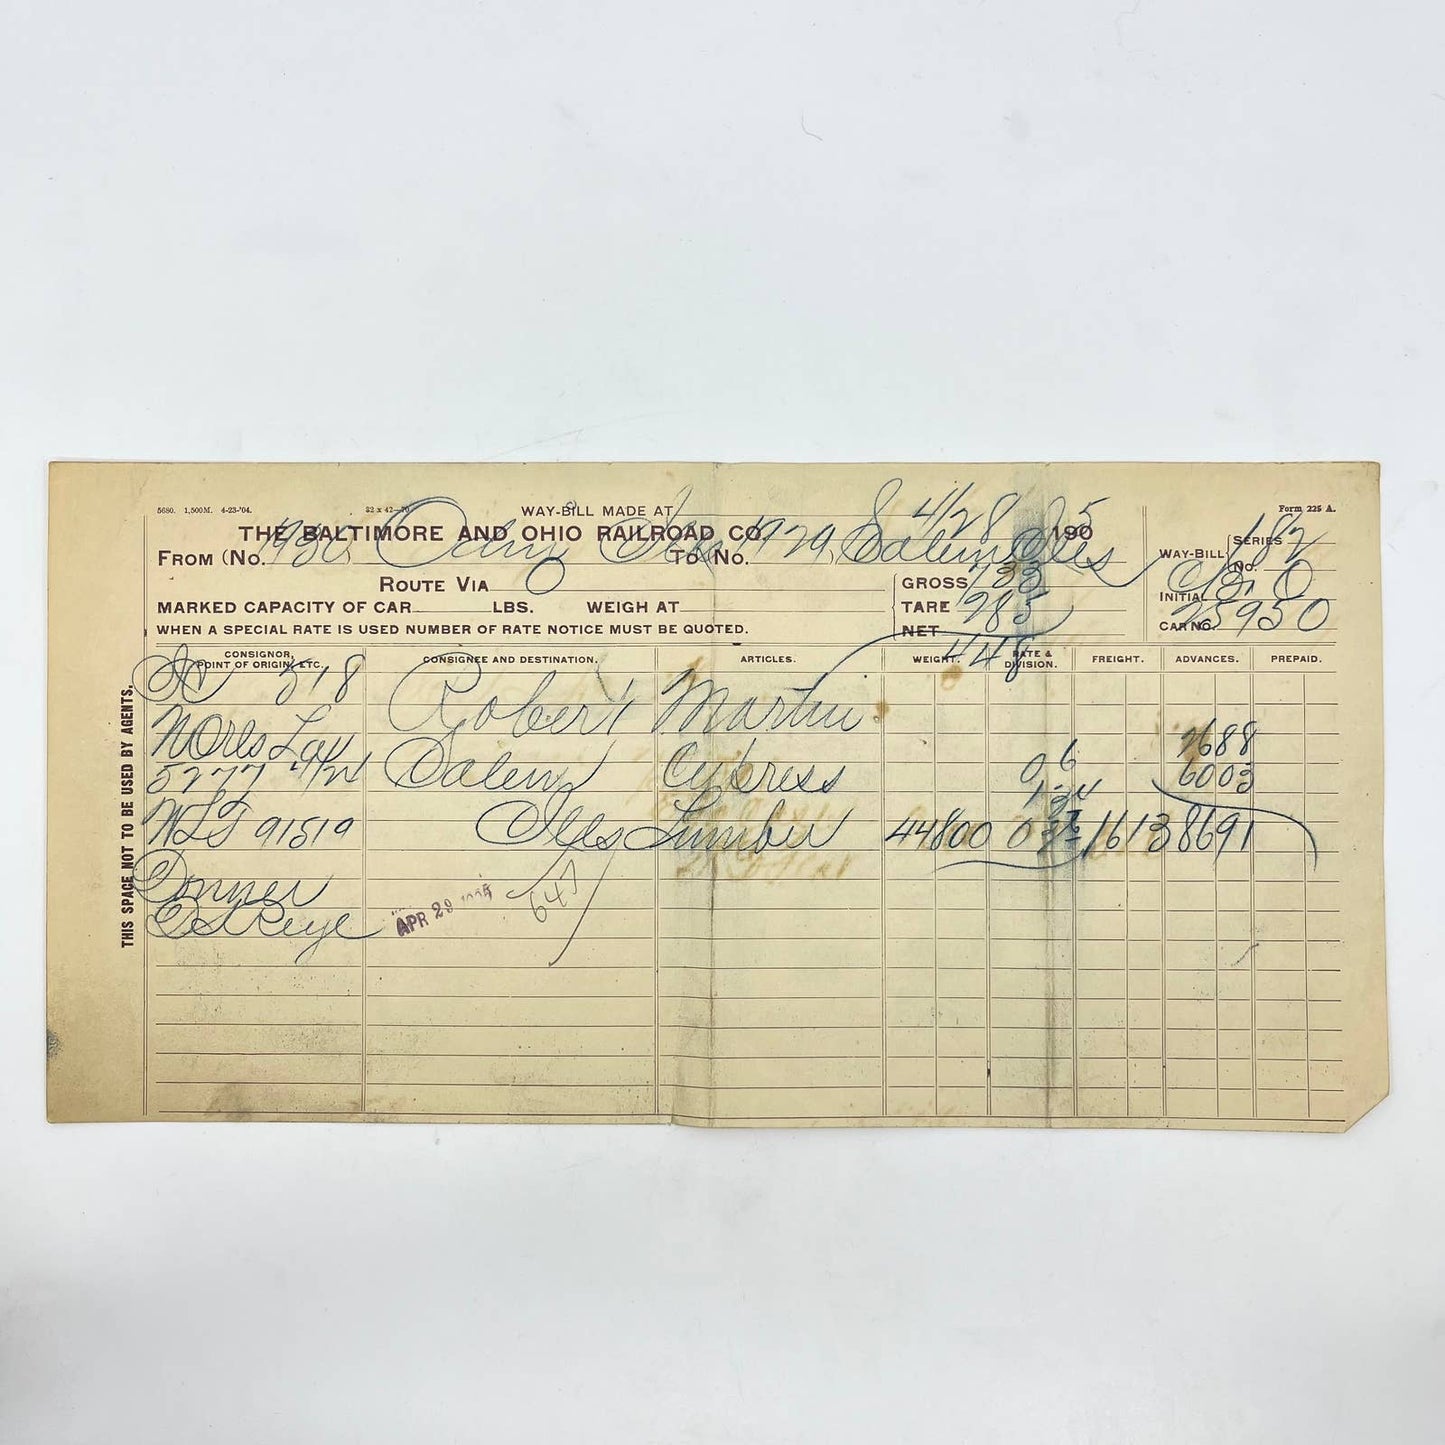 5680. 1,500M. 4-23-'04.
WAY-BILL MADE AT
4/28
Form 225 A.
THE BALTIMORE AND OHIO RAILROAD CO.
1905
FROM (No. 1930 Odin Ills TO No. 1929 Salem Ills
WAY-BILL
SERIES 182
No.
ROUTE VIA
GROSS 733
INITIAL B O
MARKED CAPACITY OF CAR LBS. WEIGH AT
TARE 285
CAR NO. 25950
WHEN A SPECIAL RATE IS USED NUMBER OF RATE NOTICE MUST BE QUOTED.
NET 448
THIS SPACE NOT TO BE USED BY AGENTS.
CONSIGNOR, POINT OF ORIGIN, ETC.
CONSIGNEE AND DESTINATION.
ARTICLES.
WEIGHT.
RATE & DIVISION.
FREIGHT.
ADVANCES.
PREPAID.
518 Robert Martin
N Orls La 2688
5277 4/24 Salem Cypress 06 6003
91519 Ills Lumber 44800 1613 8691
Donner
APR 29
647